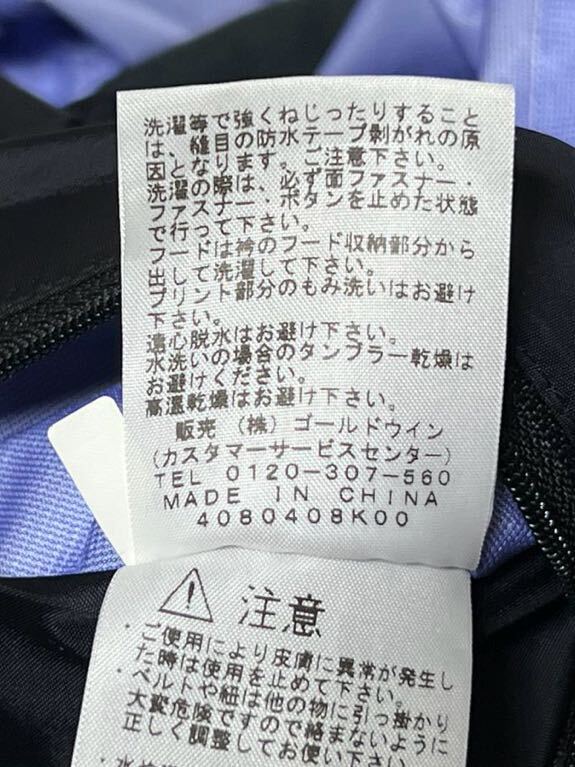 洗濯等で強くねじったりすること
は、縫目の防水テープ剥がれの原
因となります。ご注意下さい。
洗濯の際は、必ず面ファスナー・
ファスナー・ボタンを止めた状態
で行って下さい。
フードは衿のフード収納部分から
出して洗濯して下さい。
プリント部分のもみ洗いはお避け
下さい。
遠心脱水はお避け下さい。
水洗いの場合のタンブラー乾燥は
お避けください。
高温乾燥はお避け下さい。
販売 (株) ゴールドウイン
(カスタマーサービスセンター)
TEL 0120-307-560
MADE IN CHINA
4080408K00
注意
・ご使用により皮膚に異常が発生し
た時は使用を止めて下さい。
・ベルトや紐は他の物に引っ掛かり
大変危険ですので絡まないように
正しく調整してお使い下さい。